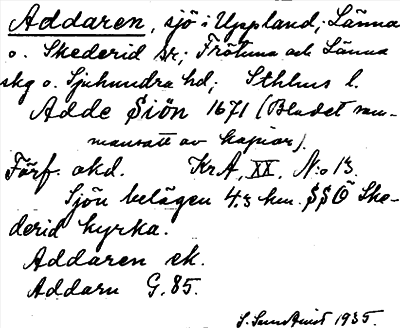 Addaren, sjö i Uppland; Länna
o. Skederid sr; Frötuna och Länna
skg o. Sjuhundra hd; Sthlms l.
Adde Siön 1671 (Bladet sam-
mansatt av kopior).
Förf. okd. KrA, XX, N:o 13.
Sjön belägen 4.3 km. SSÖ Ske-
derid kyrka.
Addaren ek.
Addarn G. 85.
1935.